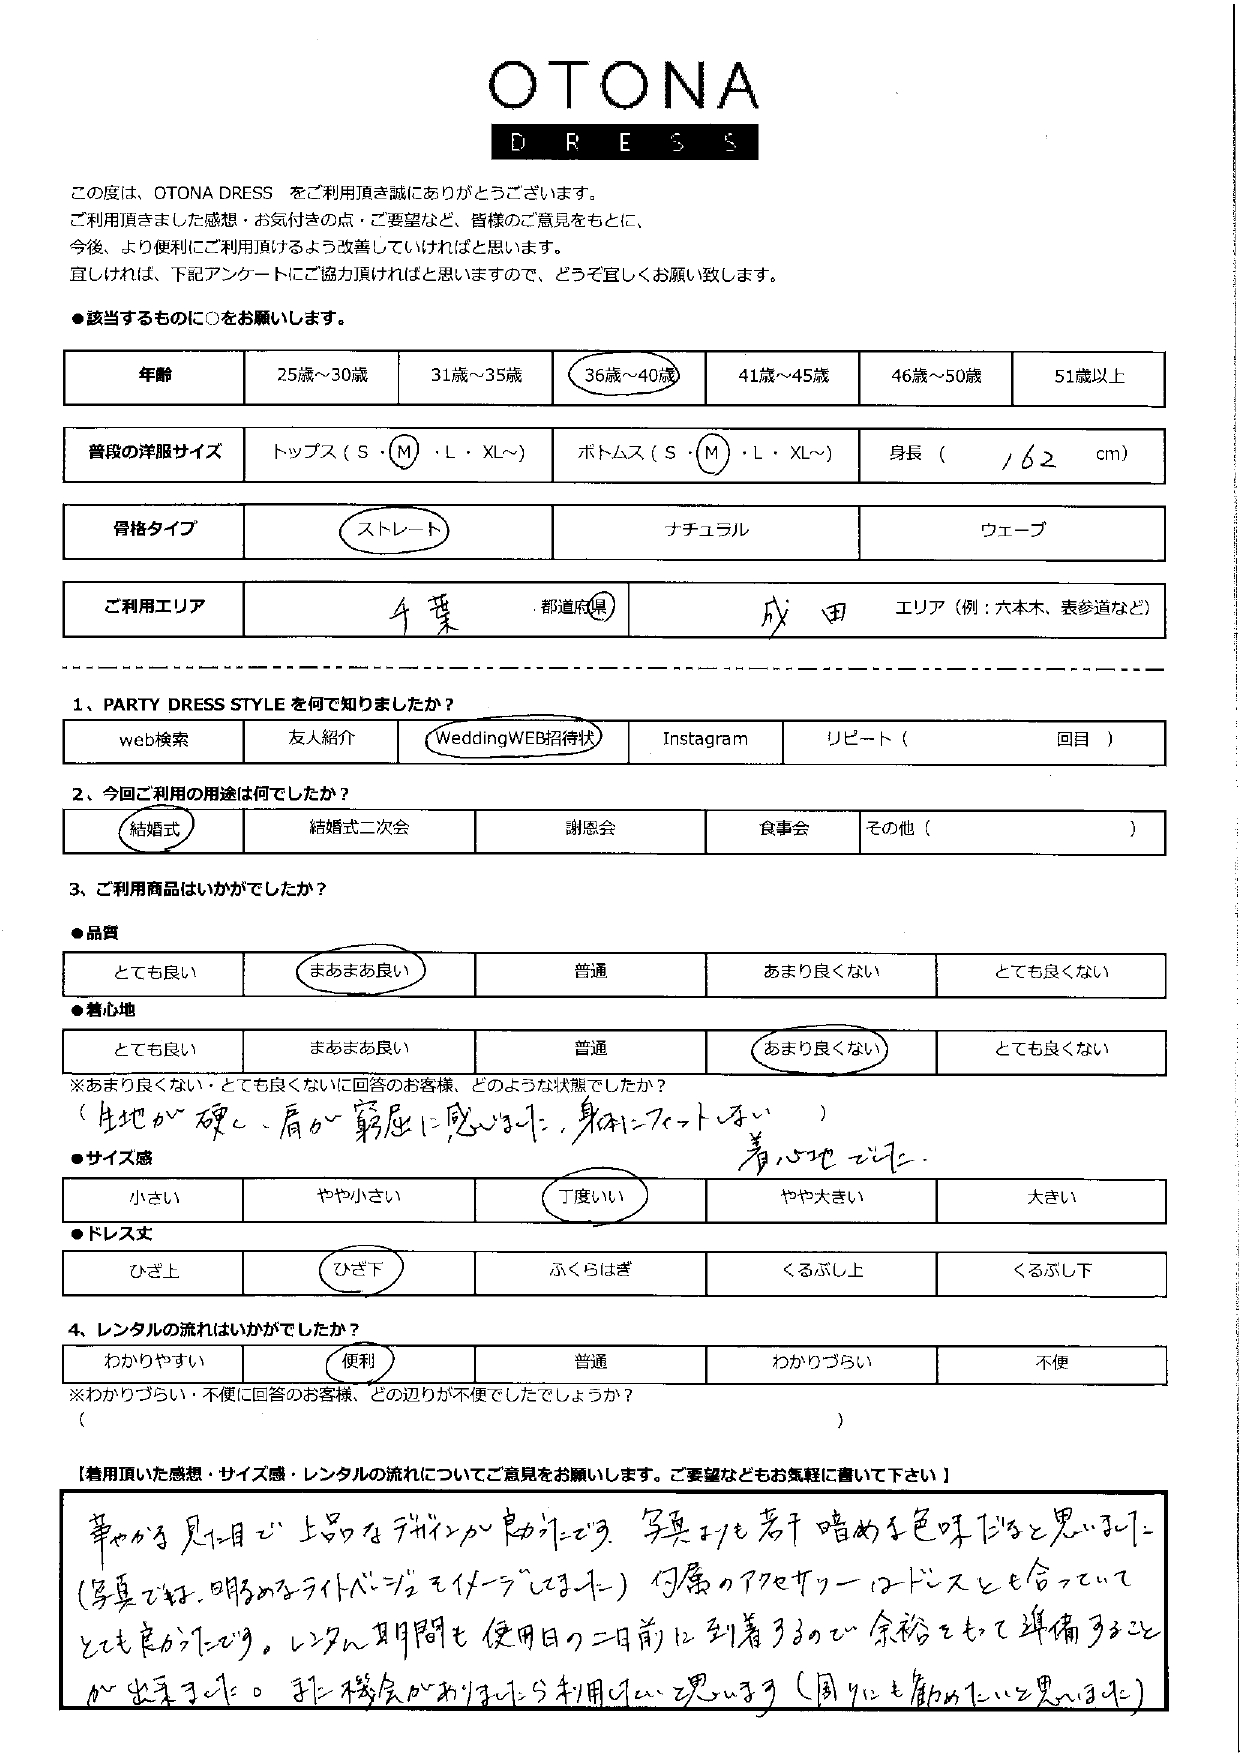 OTONA
DRESS
この度は、OTONA DRESS　をご利用頂き誠にありがとうございます。
ご利用頂きました感想・お気付きの点・ご要望など、皆様のご意見をもとに、
今後、より便利にご利用頂けるよう改善していければと思います。
宜しければ、下記アンケートにご協力頂ければと思いますので、どうぞ宜しくお願い致します。
●該当するものに○をお願いします。
年齢 25歳～30歳 31歳～35歳 36歳～40歳 41歳～45歳 46歳～50歳 51歳以上
普段の洋服サイズ トップス ( S ・ M ・ L ・ XL～) ボトムス ( S ・ M ・ L ・ XL～) 身長 ( 162 cm)
骨格タイプ ストレート ナチュラル ウェーブ
ご利用エリア 千葉 都道府県 成田 エリア（例：六本木、表参道など）
1、PARTY DRESS STYLE を何で知りましたか？
web検索 友人紹介 WeddingWEB招待状 Instagram リピート（ 回目 ）
2、今回ご利用の用途は何でしたか？
結婚式 結婚式二次会 謝恩会 食事会 その他（ ）
3、ご利用商品はいかがでしたか？
●品質
とても良い まあまあ良い 普通 あまり良くない とても良くない
●着心地
とても良い まあまあ良い 普通 あまり良くない とても良くない
※あまり良くない・とても良くないに回答のお客様、どのような状態でしたか？
（生地が硬く、肩が窮屈に感じました。身体にフィットしない ）
着心地でした。
●サイズ感
小さい やや小さい 丁度いい やや大きい 大きい
●ドレス丈
ひざ上 ひざ下 ふくらはぎ くるぶし上 くるぶし下
4、レンタルの流れはいかがでしたか？
わかりやすい 便利 普通 わかりづらい 不便
※わかりづらい・不便に回答のお客様、どの辺りが不便でしたでしょうか？
（ ）
【着用頂いた感想・サイズ感・レンタルの流れについてご意見をお願いします。ご要望などもお気軽に書いて下さい 】
華やかな見た目で上品なデザインが良かったです。写真よりも若干暗めな色味だなと思いました
（写真では、明るめなライトベージュをイメージしてました）付属のアクセサリーはドレスとも合っていて
とても良かったです。レンタル期間も使用日の二日前に到着するので余裕をもって準備すること
が出来ました。また機会がありましたら利用したいと思います（周りにも勧めたいと思いました）